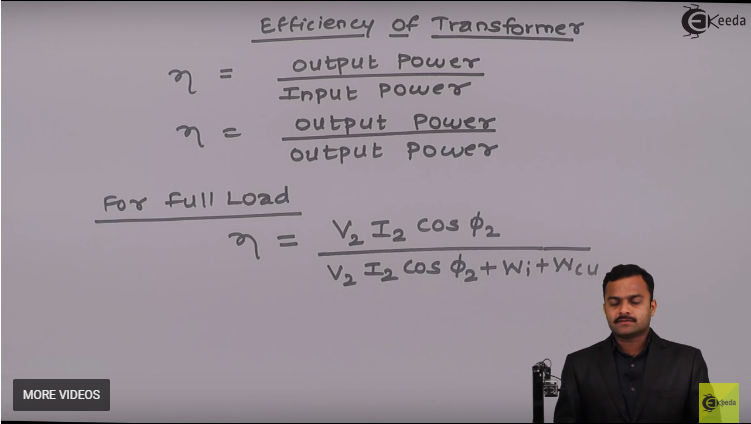 Efficiency of Transformer
Ekeeda
η = output Power / Input Power
η = output Power / output Power
For Full Load
η = V₂ I₂ cos ϕ₂ / V₂ I₂ cos ϕ₂ + Wi + Wcu
MORE VIDEOS
Ekeeda